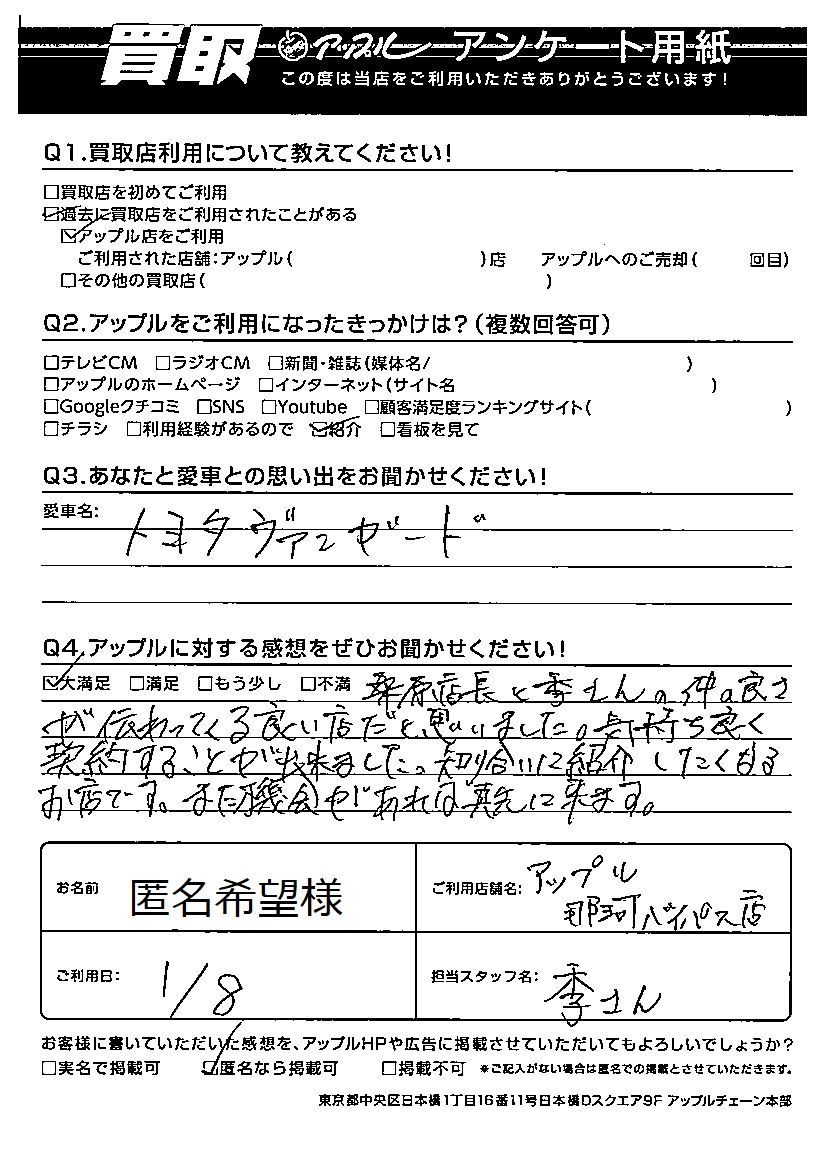 買取 アップル アンケート用紙
この度は当店をご利用いただきありがとうございます!
Q1.買取店利用について教えてください!
□買取店を初めてご利用
☑過去に買取店をご利用されたことがある
☑アップル店をご利用
ご利用された店舗:アップル( )店 アップルへのご売却( 回目)
□その他の買取店( )
Q2.アップルをご利用になったきっかけは?(複数回答可)
□テレビCM □ラジオCM □新聞・雑誌(媒体名/ )
□アップルのホームページ □インターネット(サイト名 )
□Googleクチコミ □SNS □Youtube □顧客満足度ランキングサイト( )
□チラシ □利用経験があるので ☑紹介 □看板を見て
Q3.あなたと愛車との思い出をお聞かせください!
愛車名: トヨタヴァンガード
Q4.アップルに対する感想をぜひお聞かせください!
☑大満足 □満足 □もう少し □不満 桑原店長と季さんの仲の良さ
が伝わってくる良い店だと思いました。気持ち良く
契約することが出来ました。知り合いに紹介したくなる
お店です。また機会があれば真先に来ます。
お名前 匿名希望様 ご利用店舗名: アップル
那珂バイパス店
ご利用日: 1/8 担当スタッフ名: 季さん
お客様に書いていただいた感想を、アップルHPや広告に掲載させていただいてもよろしいでしょうか?
□実名で掲載可 ☑匿名なら掲載可 □掲載不可 *ご記入がない場合は匿名での掲載とさせていただきます。
東京都中央区日本橋1丁目16番11号日本橋Dスクエア9F アップルチェーン本部